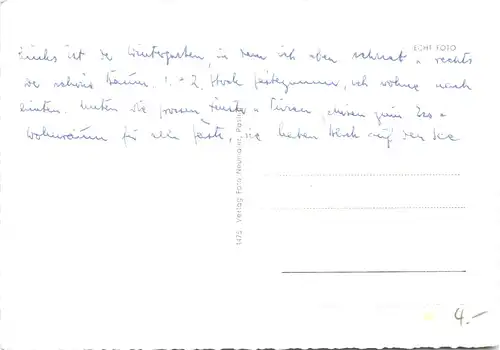 Links ist der Wintergarten, in dem ich oben schrieb u. rechts
ECHT FOTO
der schöne Raum. 1. + 2. Stock Gästezimmer, ich wohne nach
hinten. Unten die grossen Fenster u. Türen, führen zum Ess u.
Wohnraum für die Gäste, sie haben Blick auf den See
1475 Verlag Foto Neumann,
4.-